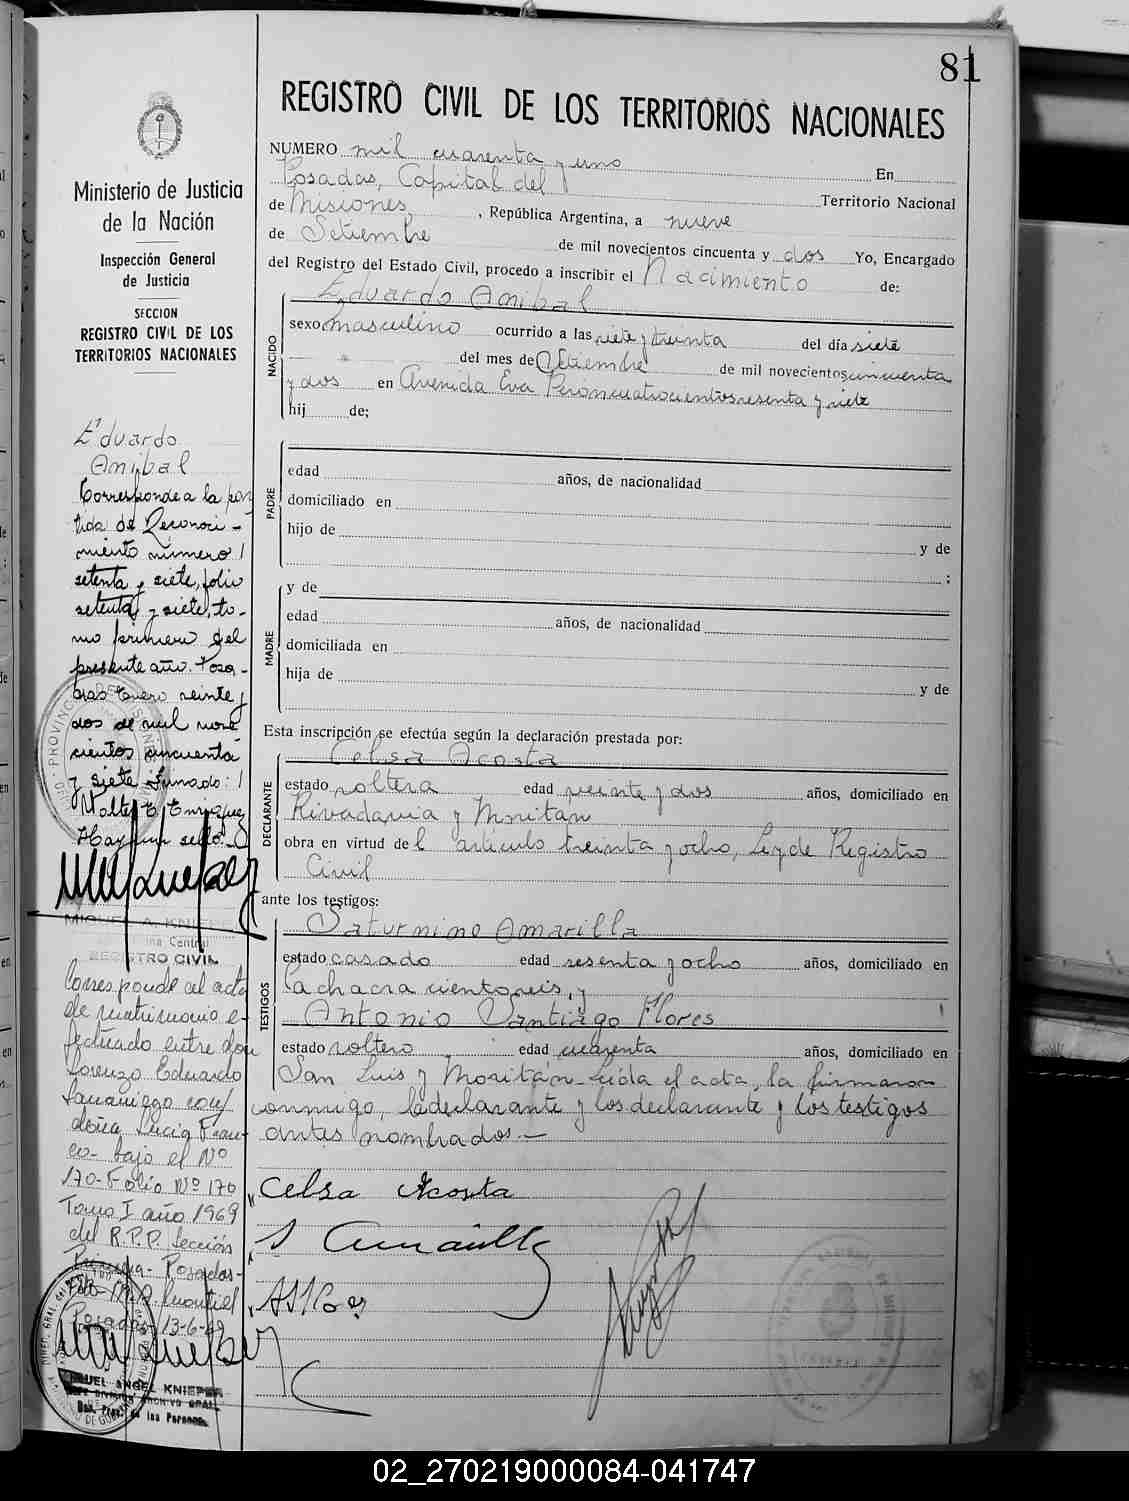 81
REGISTRO CIVIL DE LOS TERRITORIOS NACIONALES
NUMERO mil cuarenta y uno En
Posadas, Capital del Territorio Nacional
de Misiones, República Argentina, a nueve
de Setiembre de mil novecientos cincuenta y dos Yo, Encargado
del Registro del Estado Civil, procedo a inscribir el Nacimiento de:
Eduardo Anibal
NACIDO
sexo masculino ocurrido a las siete y treinta del día siete
del mes de Setiembre de mil novecientos cincuenta
y dos en Avenida Eva Perón cuatrocientos sesenta y siete
hij de;
PADRE
edad años, de nacionalidad
domiciliado en
hijo de y de
;
MADRE
y de
edad años, de nacionalidad
domiciliada en
hija de y de
Esta inscripción se efectúa según la declaración prestada por:
Celsa Acosta
DECLARANTE
estado soltera edad veinte y dos años, domiciliado en
Rivadavia y Moritan
obra en virtud del artículo treinta y ocho, Ley de Registro
Civil
ante los testigos:
Saturnino Amarilla
TESTIGOS
estado casado edad sesenta y ocho años, domiciliado en
la chacra cientoseis, y
Antonio Santiago Flores
estado soltero edad cuarenta años, domiciliado en
San Luis y Moritán - Leida el acta, la firmaron
conmigo, la declarante y los declarante y los testigos
antes nombrados.-
Celsa Acosta
S Amarilla
Ministerio de Justicia
de la Nación
Inspección General
de Justicia
SECCION
REGISTRO CIVIL DE LOS
TERRITORIOS NACIONALES
Eduardo
Anibal
Corresponde a la par
tida de Reconoci-
miento número
setenta y siete, folio
setenta y siete, to-
mo primero del
presente año. Posa-
das Enero veinte y
dos de mil nove
cientos cincuenta
y siete Firmado:
Walter E. Enriquez
Hay un sello.
MIGUEL A. KNIEPER
Oficina Central
REGISTRO CIVIL
Corresponde al acta
de matrimonio e-
fectuado entre don
Lorenzo Eduardo
Samaniego con
doña Lucia Fran
co- bajo el Nº
170-Folio Nº 170
Tomo I año 1969
del R.P.P. Sección
Primera- Posadas-
Fdo- Montiel
Posadas 13-6-69
MIGUEL ANGEL KNIEPER
JEFE DIVISION ARCHIVO GRAL.
Dir. Prov. de las Personas
02_270219000084-041747